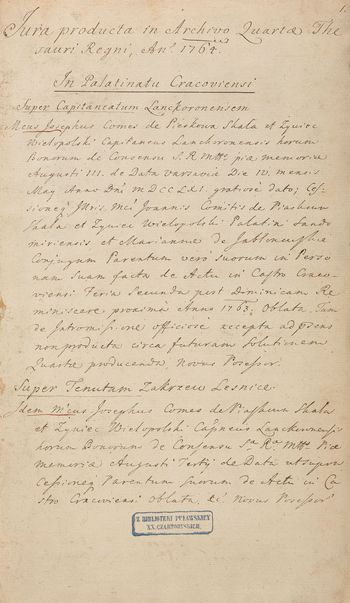 1.
Jura producta in Archivo Quartæ The
sauri Regni, Anº. 1764.
In Palatinatu Cracoviensi
Super Capitaneatum Lanckoronensem
Mcus Josephus Comes de Pieskowa Skała et Zywiec
Wielopolski Capitaneus Lanckoronensis horum
Bonorum de Consensu S. R. Mttis. piæ memoriæ
Augusti III. de Data Varsaviæ Die IV. mensis
May Anno Dni MDCCLXI. gratiose dato; Ces-
sioneq Illris. Mci Joannis Comitis de Piaskowa
Skała et Zywiec Wielopolski Palatini Sando
miriensis et Mariannæ de Jabłonowskie
Conjugum Parentum vero suorum in Perso
nam suam facta de Actu in Castro Craco-
viensi Feria Secunda post Dominicam Re
miniscere proxima Anno 1763. Oblata,
de officiose accepta ad
non producta circa futuram solutionem
Quartæ producenda, Novus Possessor.
Super Tenutam Zakrzew Lesnica
Idem Mcus Josephus Comes de Piaskowa Skała
et Zywiec Wielopolski Capneus Lanckoronensis
horum Bonorum de Consensu Sæ. Ræ. Mttis. Piæ
memoriæ Augusti Tertij de Data ut supra
Cessioneq Parentum suorum de Actu in Ca
stro Cracoviensi Oblata, Novus Possessor
Z BIBLIOTEKI PUŁAWSKIEY
XX. CZARTORYSKICH.